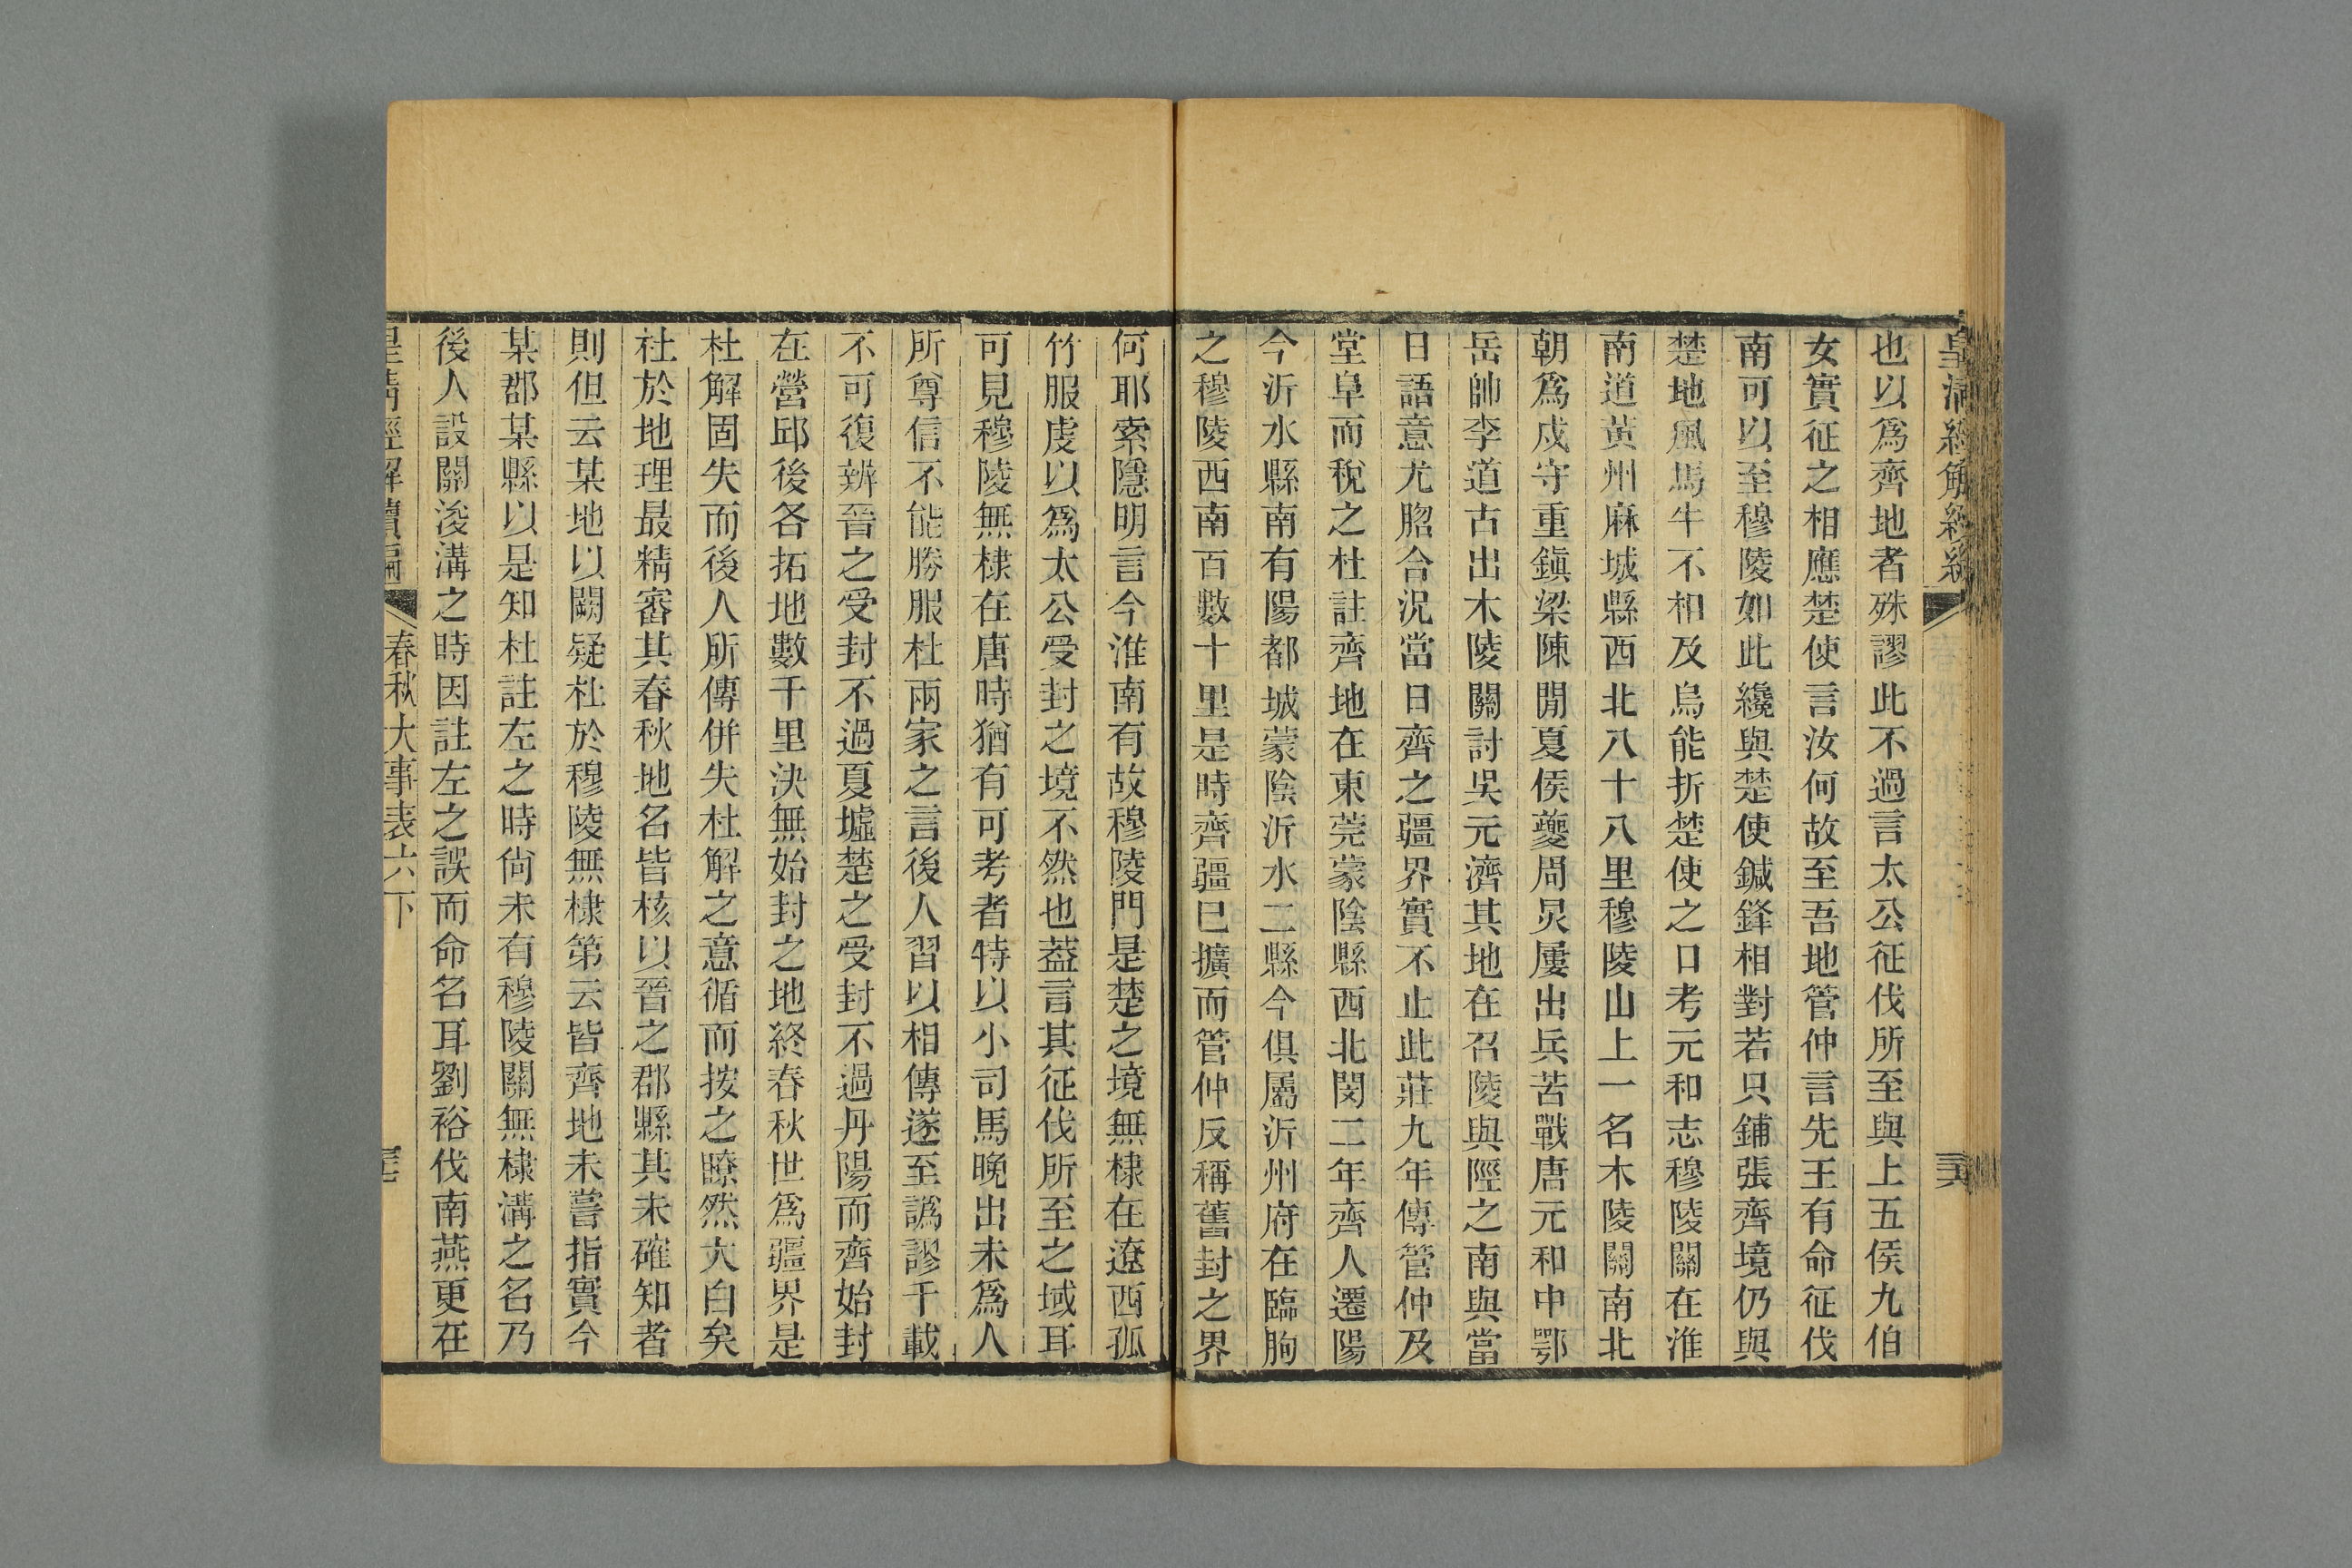 也以爲齊地者殊謬此不過言太公征伐所至與上五侯九伯
女實征之相應楚使言汝何故至吾地管仲言先王有命征伐
南可以至穆陵如此纔與楚使鍼鋒相對若只鋪張齊境仍與
楚地風馬牛不相及烏能折楚使之口考元和志穆陵關在淮
南道黃州麻城縣西北八十八里穆陵山上一名木陵關南北
朝爲戍守重鎭梁陳閒夏侯夔周炅屢出兵苦戰唐元和中鄂
岳帥李道古出木陵關討吳元濟其地在召陵與陘之南與當
日語意尤脗合況當日齊之疆界實不止此莊九年傳管仲及
堂阜而稅之杜註齊地在東莞蒙陰縣西北閔二年齊人遷陽
今沂水縣南有陽都城蒙陰沂水二縣今俱屬沂州府在臨朐
之穆陵西南百數十里是時齊疆已擴而管仲反稱舊封之界
何耶索隱明言今淮南有故穆陵門是楚之境無棣在遼西孤
竹服虔以爲太公受封之境不然也葢言其征伐所至之域耳
可見穆陵無棣在唐時猶有可考者特以小司馬晚出未爲人
所尊信不能勝服杜兩家之言後人習以相傳遂至譌謬千載
不可復辨晉之受封不過夏墟楚之受封不過丹陽而齊始封
在營邱後各拓地數千里決無始封之地終春秋世爲疆界是
杜解固失而後人所傳併失杜解之意循而按之瞭然大白矣
杜於地理最精審其春秋地名皆核以晉之郡縣其未確知者
則但云某地以闕疑杜於穆陵無棣第云皆齊地未嘗指實今
某郡某縣以是知杜註左之時尙未有穆陵關無棣溝之名乃
後人設關浚溝之時因註左之誤而命名耳劉裕伐南燕更在
皇淸經解續編 春秋大事表六下